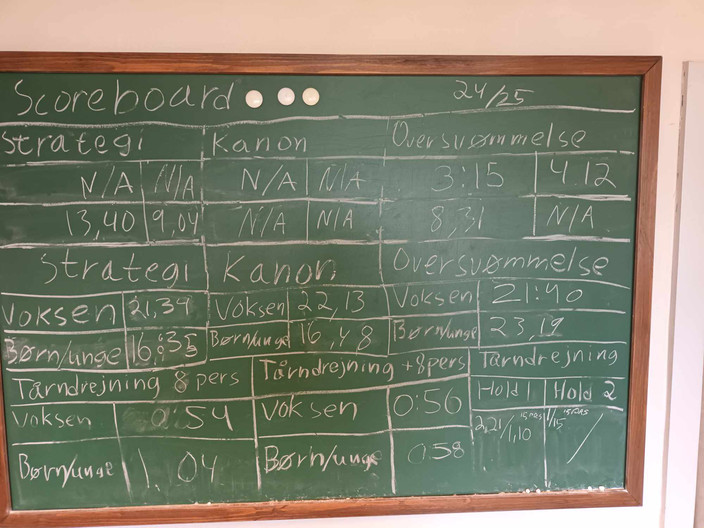 Scoreboard 24/25
Strategi Kanon Oversvømmelse
N/A N/A N/A N/A 3:15 4 12
13,40 9,04 N/A N/A 8,31 N/A
Strategi Kanon Oversvømmelse
Voksen 21,34 Voksen 22,13 Voksen 21:40
Børn/unge 16:35 Børn/unge 16,48 Børn/unge 23,19
Tårndrejning 8 pers Tårndrejning +8pers Tårndrejning
Hold 1 Hold 2
Voksen 0:54 Voksen 0:56
2,21/1,10
Børn/unge 1,04 Børn/unge 0:58